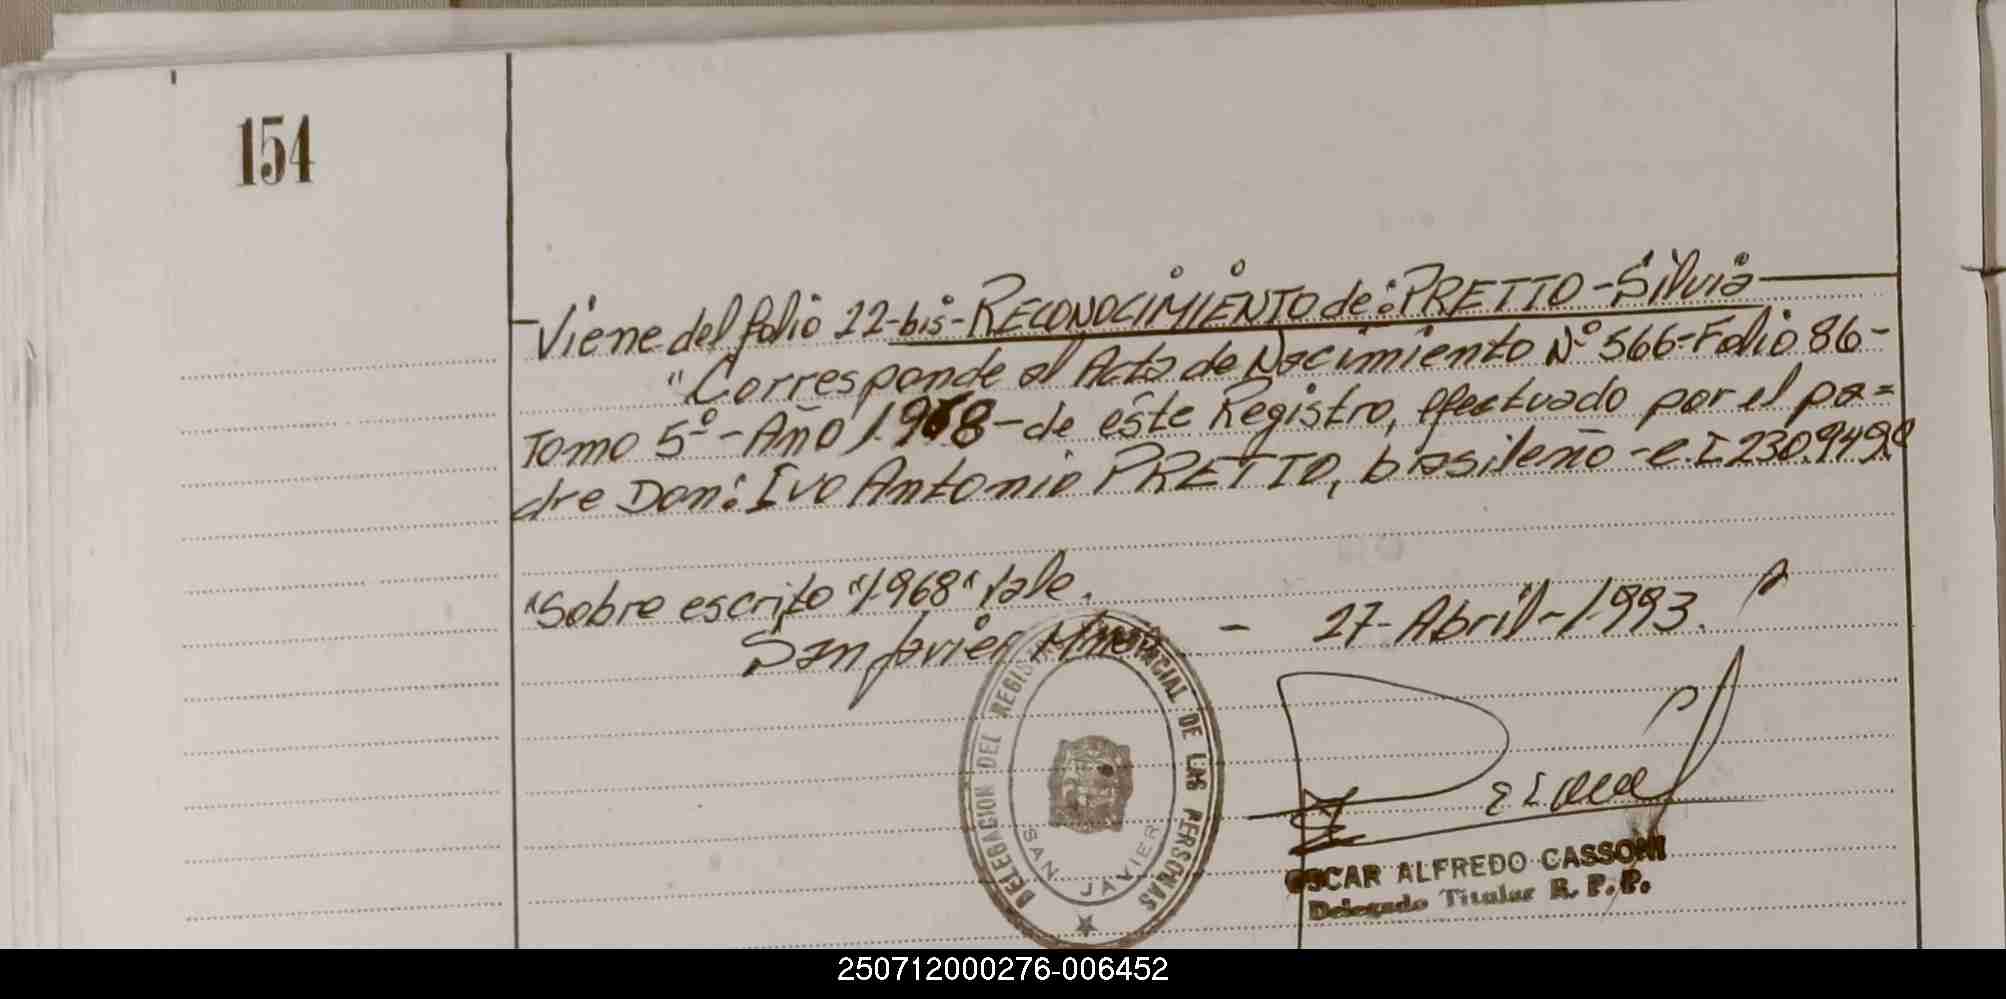 154
Viene del folio 22-bis-RECONOCIMIENTO de: PRETTO-Silvia
"Corresponde al Acta de Nacimiento Nº 566-Folio 86-
Tomo 5º-Año 1.968-de éste Registro, efectuado por el pa=
dre Don: Ivo Antonio PRETTO, brasileño-C.I 230.949.
"Sobre escrito "1.968" Vale.
San Javier Mnes - 27-Abril-1.993.
DELEGACION DEL REGISTRO PROVINCIAL DE LAS PERSONAS
SAN JAVIER
OSCAR ALFREDO CASSONI
Delegado Titular R. P. P.
250712000276-006452